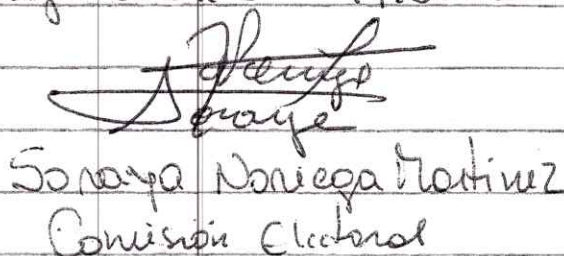 Soraya
Soraya Noriega Martinez
Comisión Electoral